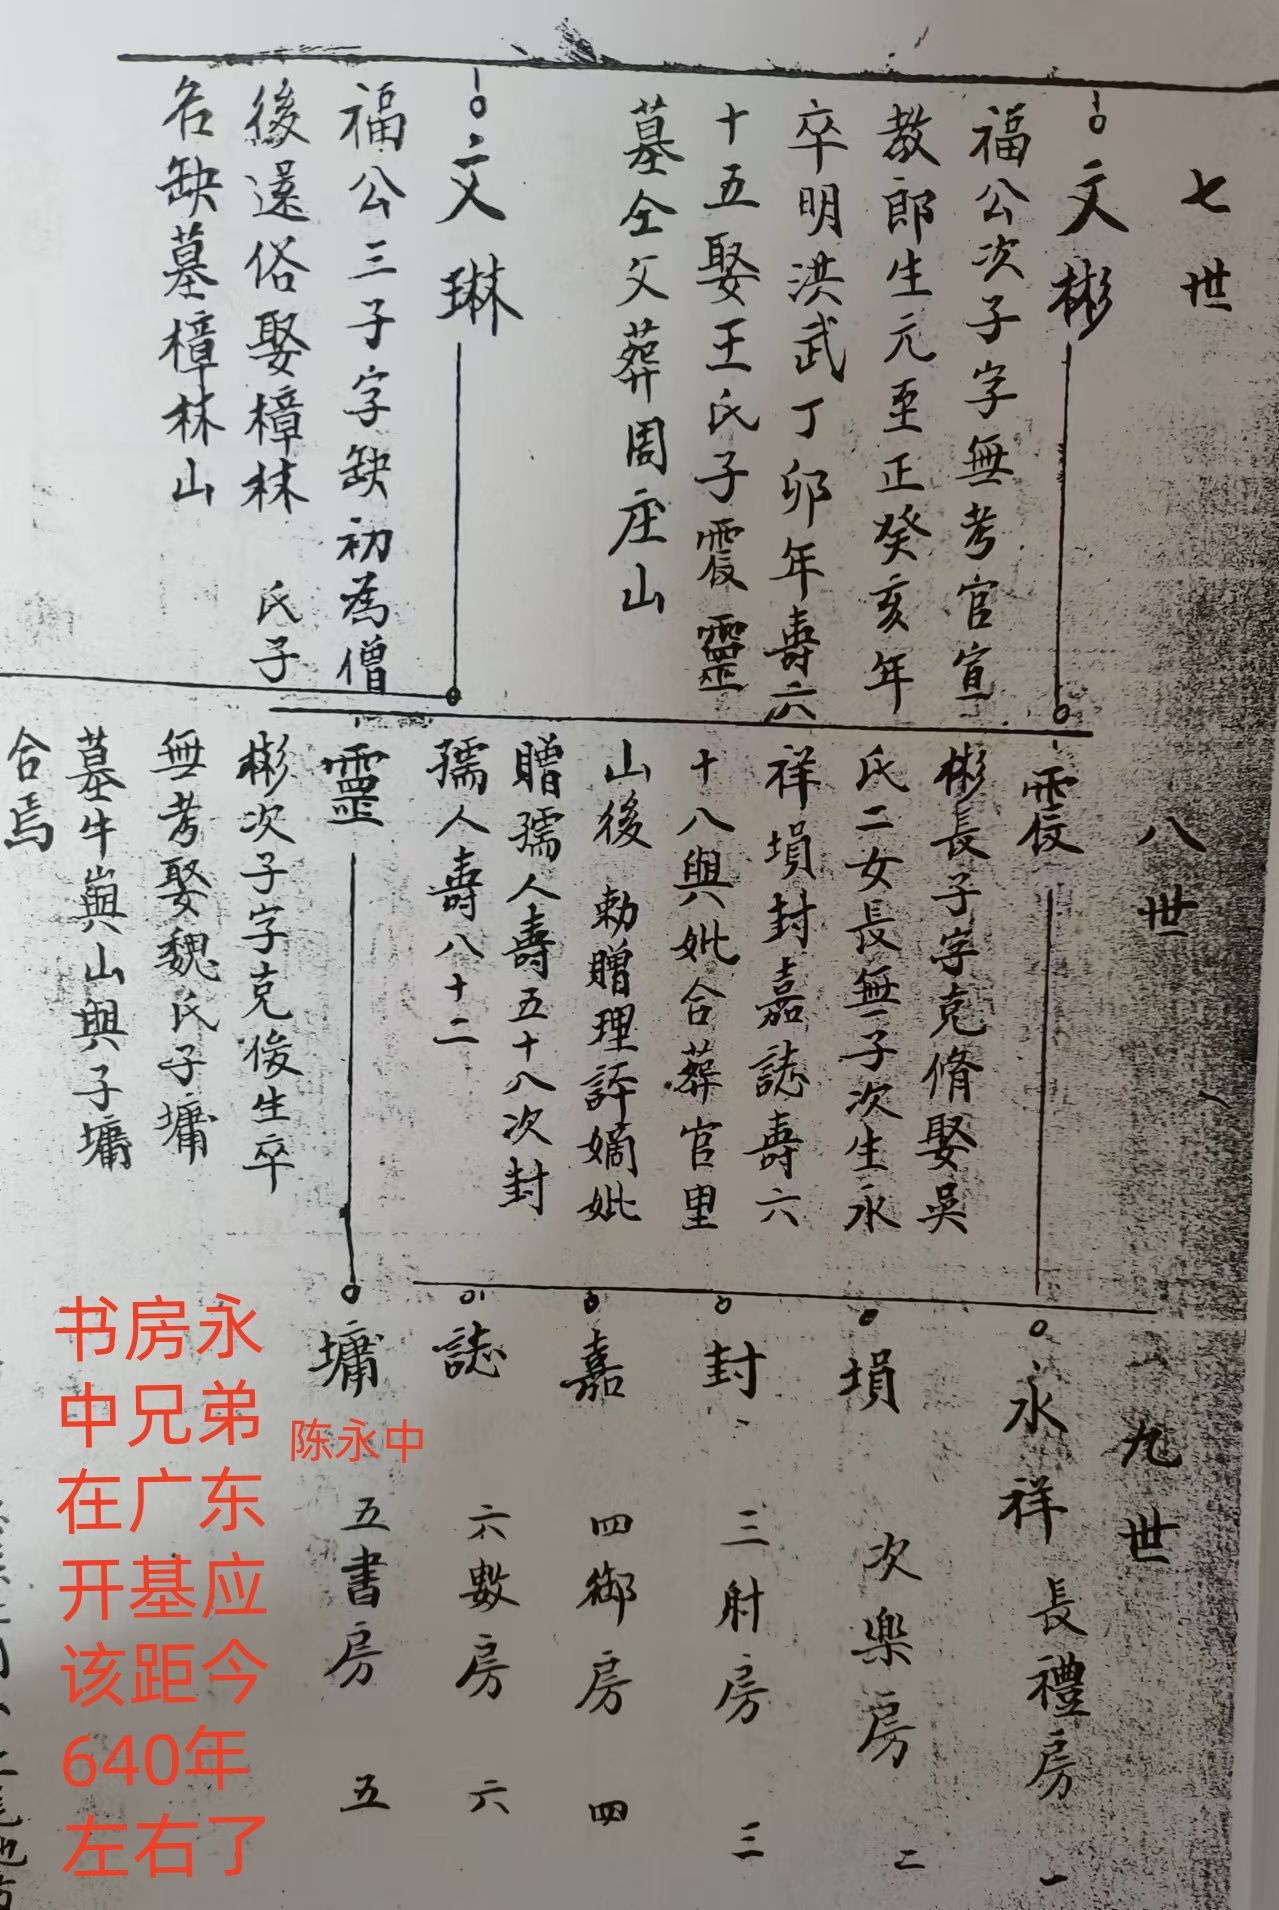 七世
文彬
福公次子字無考官宣
教郎生元至正癸亥年
卒明洪武丁卯年壽六
十五娶王氏子震靈
墓仝父葬周庄山
文琳
福公三子字缺初為僧
後還俗娶樟林 氏子
名缺墓樟林山
八世
震
彬長子字克脩娶吳
氏二女長無子次生永
祥塤封嘉誌壽六
十八與妣合葬官里
山後 勅贈理評嫡妣
贈孺人壽五十八次封
孺人壽八十二
靈
彬次子字克俊生卒
無考娶魏氏子墉
墓牛嶼山與子墉
合焉
九世
永祥 長禮房 一
塤 次樂房 二
封 三射房 三
嘉 四御房 四
誌 六數房 六
墉 五書房 五
陈永中
书房永
中兄弟
在广东
开基应
该距今
640年
左右了